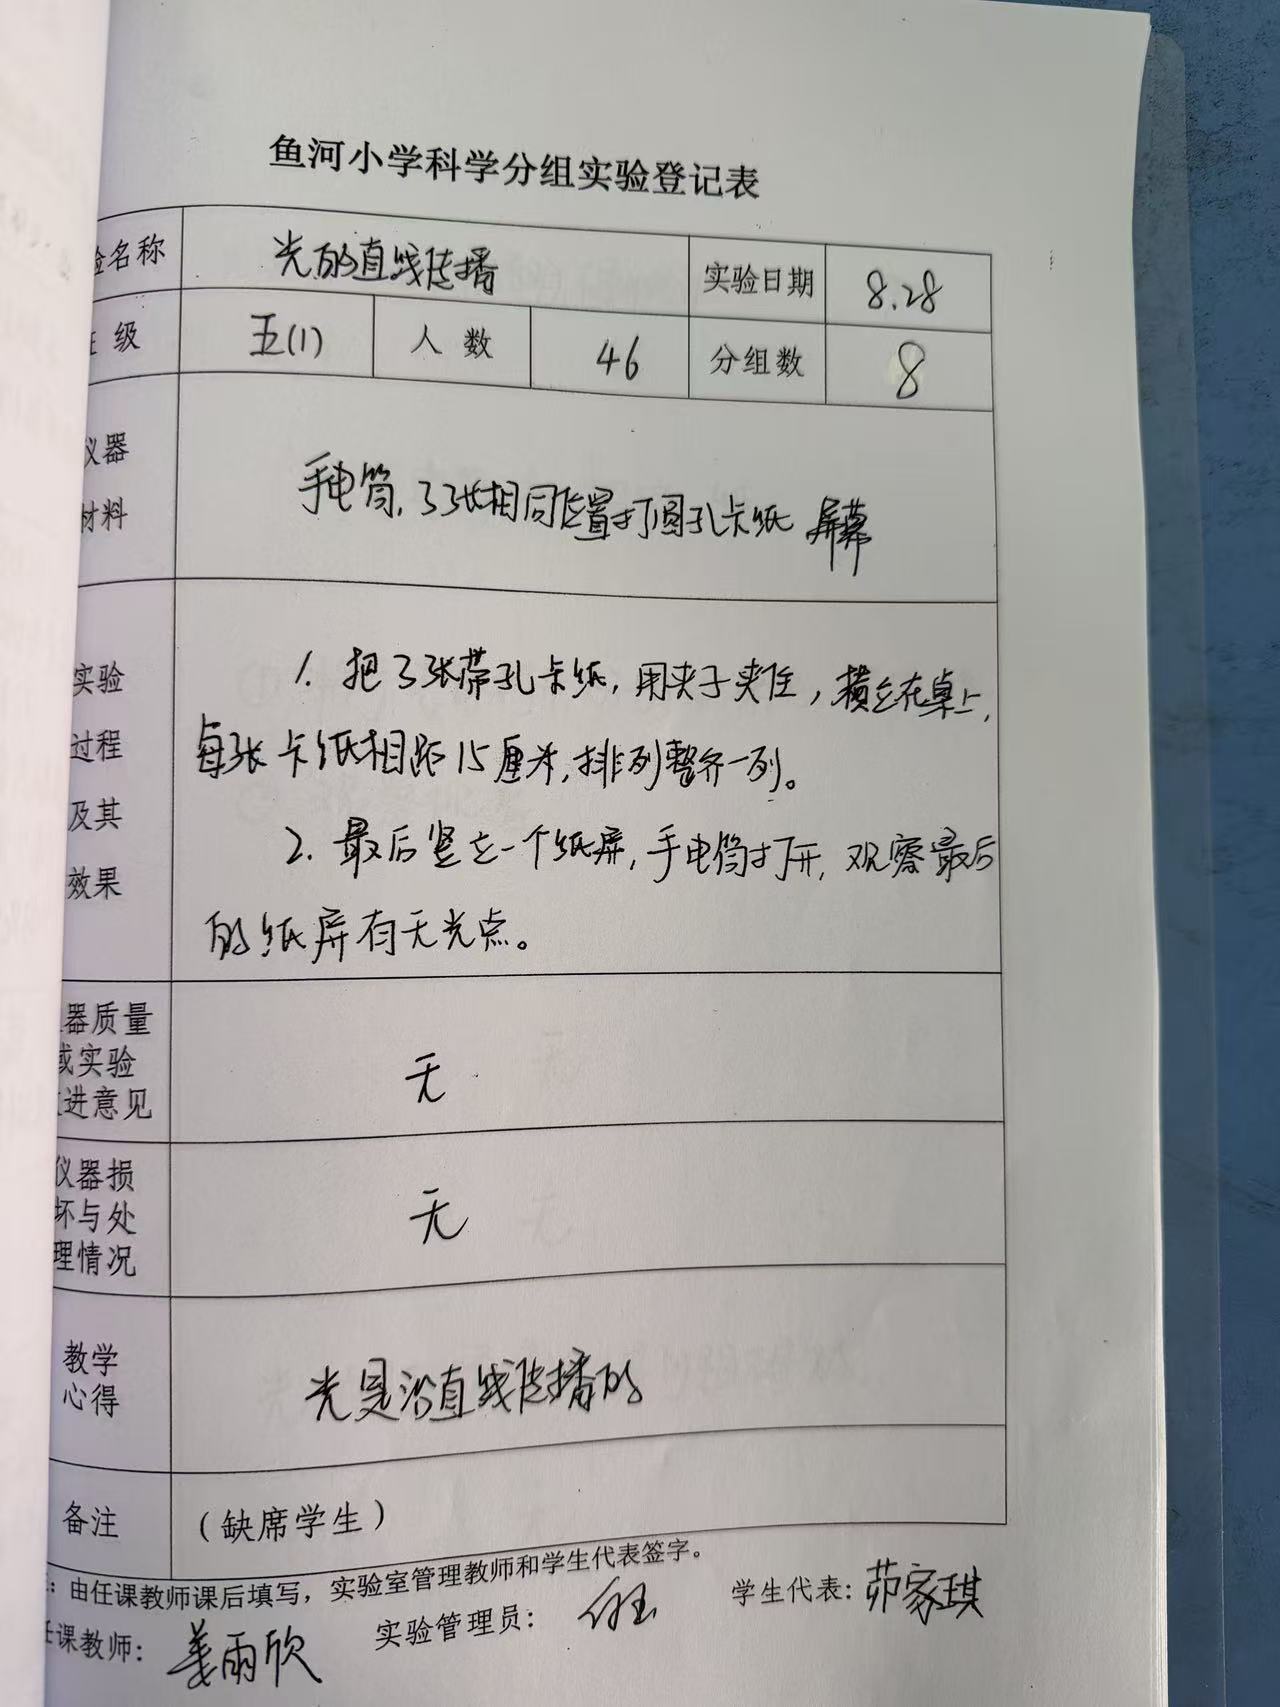 鱼河小学科学分组实验登记表
验名称 光的直线传播 实验日期 8.28
级 五(1) 人数 46 分组数 8
仪器
材料
手电筒,3张相同位置打圆孔卡纸 屏幕
实验
过程
及其
效果
1. 把3张带孔卡纸,用夹子夹住,横立在桌上,
每张卡纸相距15厘米,排列整齐一列。
2. 最后竖立一个纸屏,手电筒打开,观察最后
的纸屏有无光点。
器质量
或实验
进意见
无
仪器损
坏与处
理情况
无
教学
心得
光是沿直线传播的
备注 (缺席学生)
:由任课教师课后填写,实验室管理教师和学生代表签字。
任课教师: 姜雨欣 实验管理员: 学生代表: 茆家琪